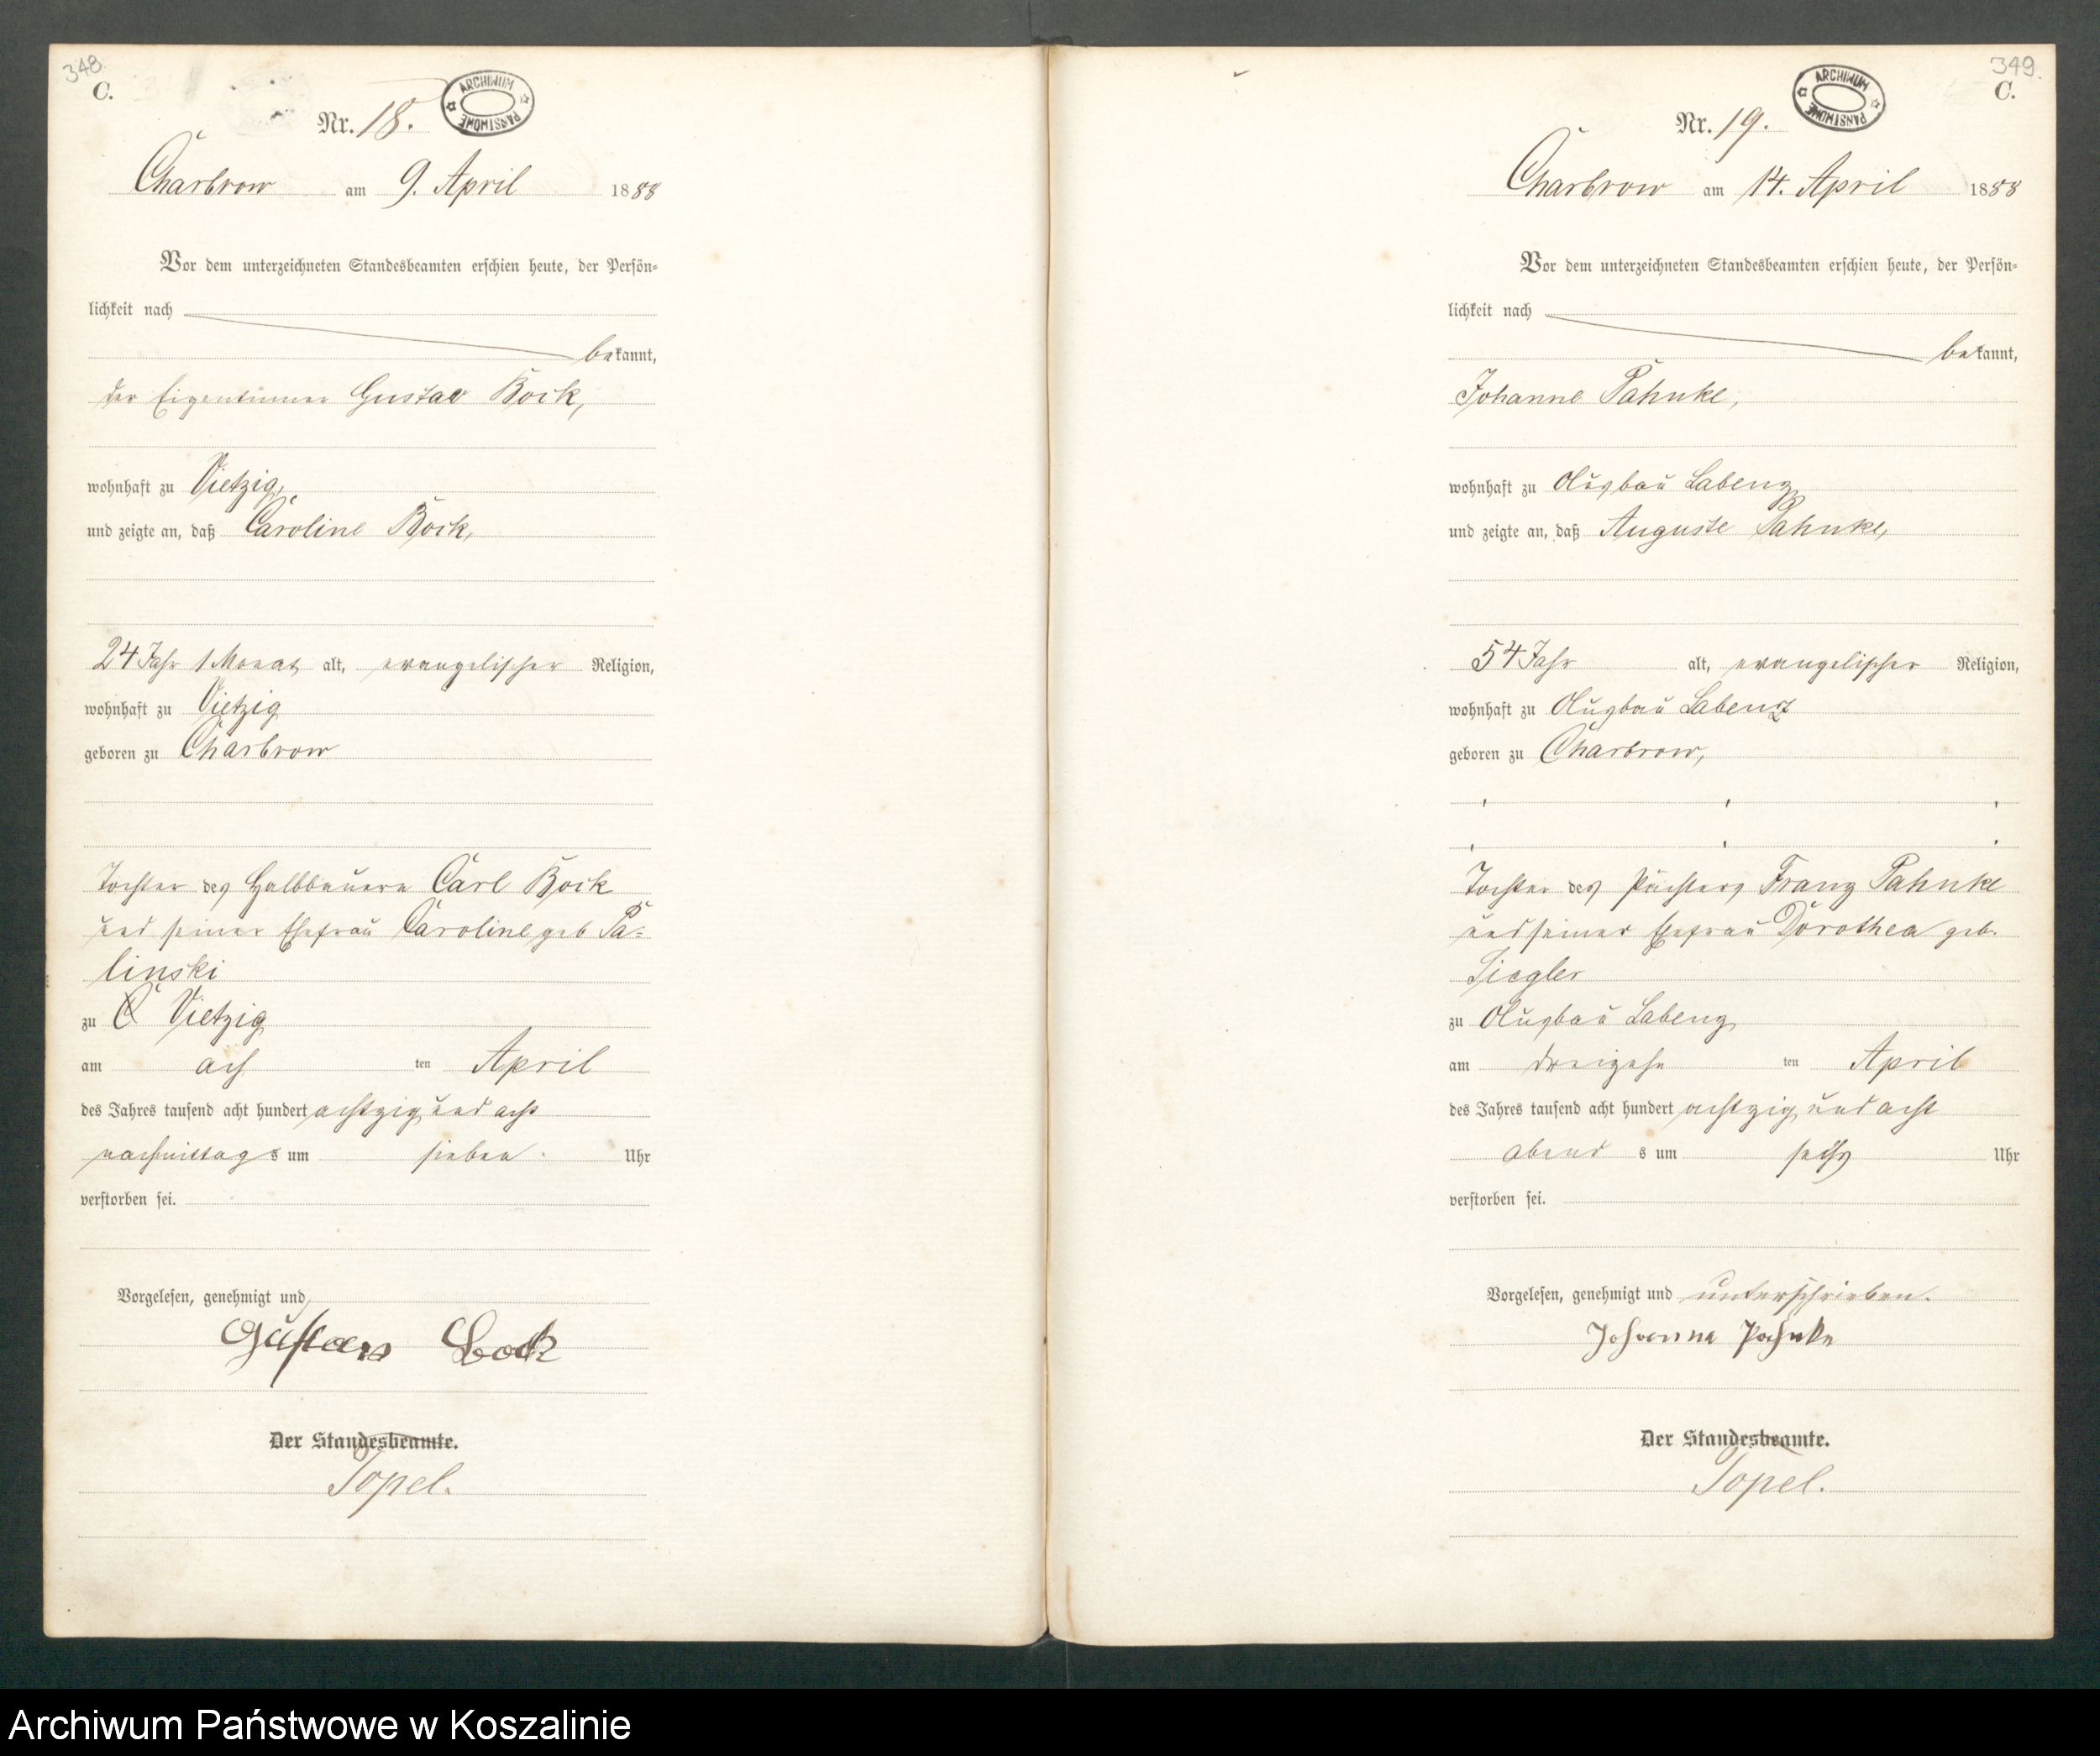 348
C.
Nr. 18.
ARCHIWUM PAŃSTWOWE
Charbrow am 9. April 1888
Vor dem unterzeichneten Standesbeamten erschien heute, der Persön-
lichkeit nach
bekannt,
der Eigentümer Gustav Bock,
wohnhaft zu Vietzig,
und zeigte an, daß Caroline Bock,
24 Jahr 1 Monat alt, evangelischer Religion,
wohnhaft zu Vietzig
geboren zu Charbrow
Tochter des Halbbauern Carl Bock
und seiner Ehefrau Caroline geb Pa-
linski
zu Vietzig
am ach ten April
des Jahres tausend acht hundert achtzig und acht
nachmittags um sieben Uhr
verstorben sei.
Vorgelesen, genehmigt und
Gustav Bock
Der Standesbeamte.
Topel.
349
C.
Nr. 19.
ARCHIWUM PAŃSTWOWE
Charbrow am 14. April 1888
Vor dem unterzeichneten Standesbeamten erschien heute, der Persön-
lichkeit nach
bekannt,
Johanne Pahnke,
wohnhaft zu Labenz
und zeigte an, daß Auguste Pahnke,
54 Jahr alt, evangelischer Religion,
wohnhaft zu Labenz
geboren zu Charbrow,
Tochter des Pächters Franz Pahnke
und seiner Ehefrau Dorothea geb.
Ziegler
zu Labenz
am dreizehn ten April
des Jahres tausend acht hundert achtzig und acht
abend s um sechs Uhr
verstorben sei.
Vorgelesen, genehmigt und unterschrieben.
Johanna Pahnke
Der Standesbeamte.
Topel.
Archiwum Państwowe w Koszalinie